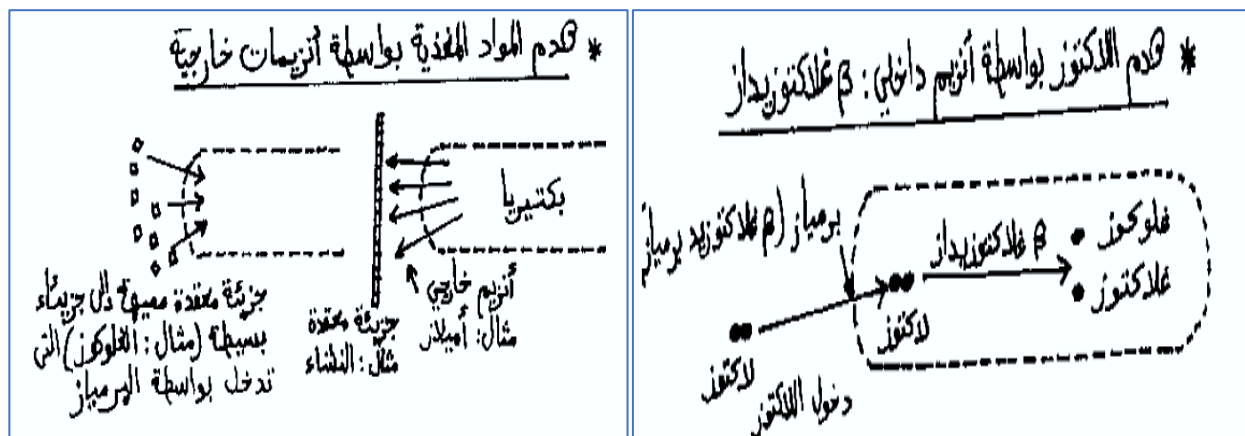 * هدم اللاكتوز بواسطة أنزيم داخلي : β غلاكتوزيداز
برمياز (β غلاكتوزيد برمياز
β غلاكتوزيداز
غلوكوز
غلاكتوز
لاكتوز
لاكتوز
دخول اللاكتوز
* هدم المواد المغذية بواسطة أنزيمات خارجية
بكتيريا
أنزيم خارجي
مثال: أميلاز
جزيئة معقدة
مثال: النشاء
جزيئة معقدة مميهة إلى جزيئات
بسيطة (مثال: الغلوكوز) التي
تدخل بواسطة البرمياز